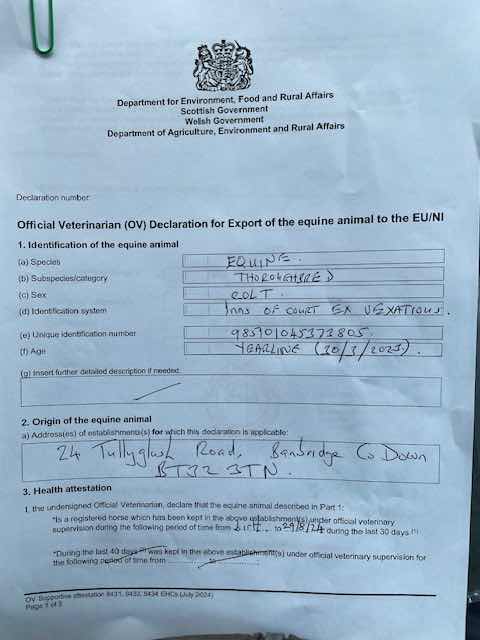 Department for Environment, Food and Rural Affairs
Scottish Government
Welsh Government
Department of Agriculture, Environment and Rural Affairs
Declaration number:
Official Veterinarian (OV) Declaration for Export of the equine animal to the EU/NI
1. Identification of the equine animal
(a) Species EQUINE.
(b) Subspecies/category THOROUGHBRED
(c) Sex COLT.
(d) Identification system Inns OF COURT EX VEXATIOUS.
(e) Unique identification number 985901045373805.
(f) Age YEARLING (30/3/2023).
(g) Insert further detailed description if needed:
2. Origin of the equine animal
a) Address(es) of establishments(s) for which this declaration is applicable:
24 Tullyglush Road, Banbridge Co Down
BT32 3TN.
3. Health attestation
I, the undersigned Official Veterinarian, declare that the equine animal described in Part 1:
*Is a registered horse which has been kept in the above establishment(s) under official veterinary
supervision during the following period of time from birth to 29/8/24 during the last 30 days (1)
*During the last 40 days (1) was kept in the above establishment(s) under official veterinary supervision for
the following period of time from ............ to ............
OV Supportive attestation 8431, 8432, 8434 EHCs (July 2024)
Page 1 of 3